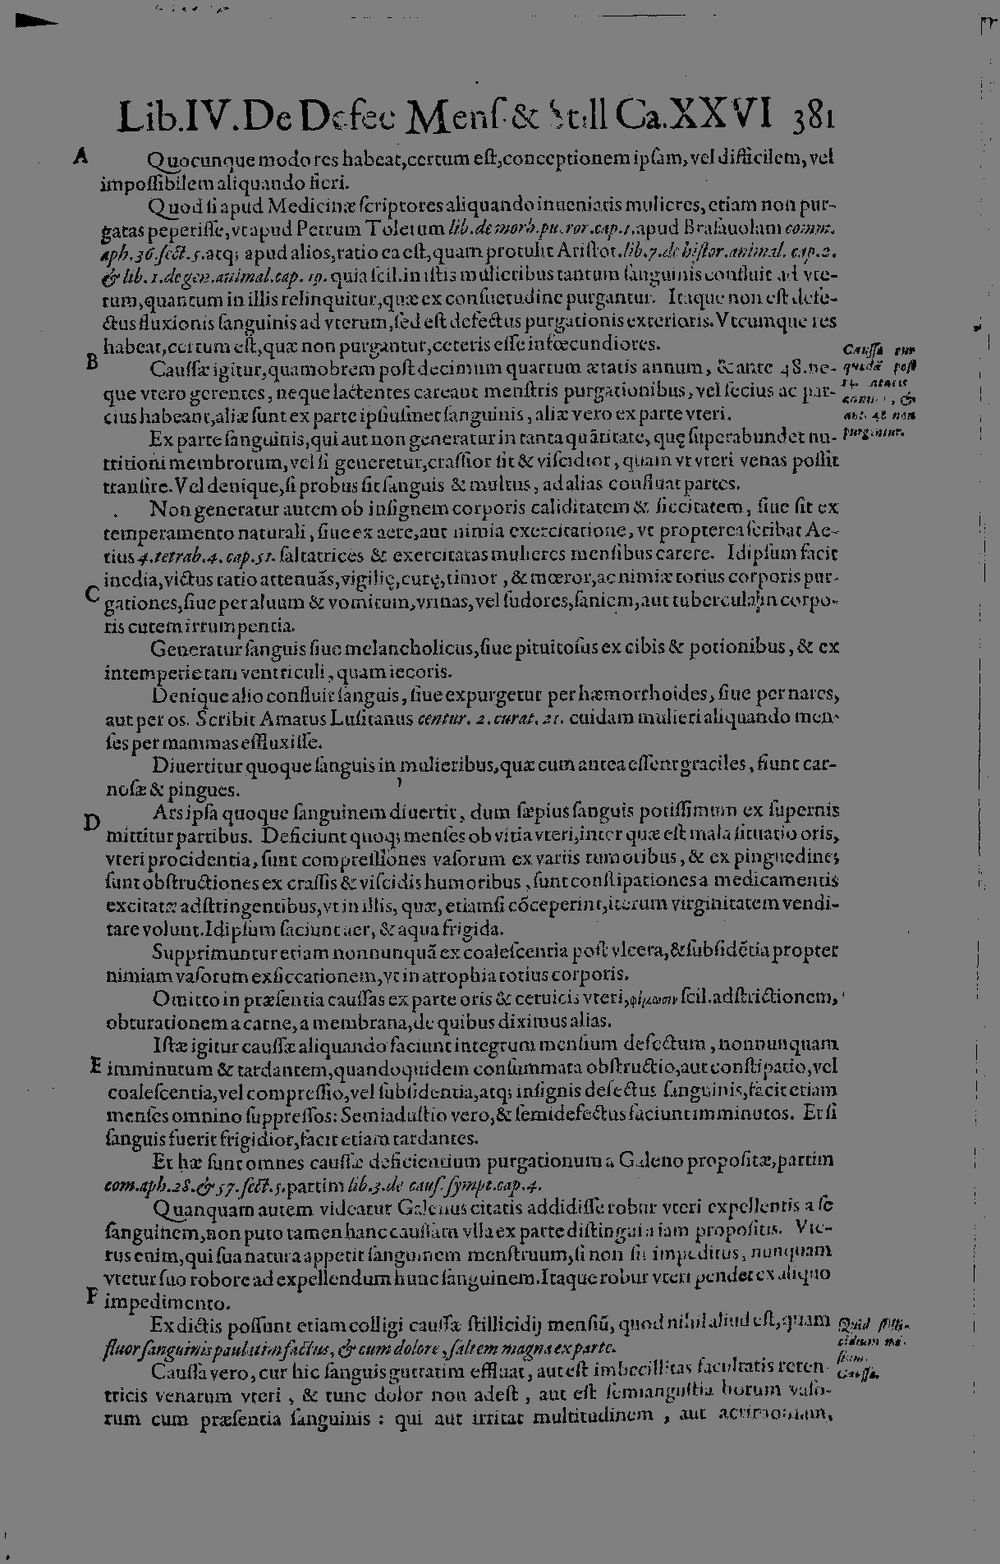 Lib.IV.De Defec Menſ.& Still Ca.XXVI 381
A Quocunque modo res habeat,certum eſt,conceptionem ipſam,vel difficilem,vel
impoſſibilem aliquando fieri.
Quod ſi apud Medicinæ ſcriptores aliquando inueniatis mulieres,etiam non pur-
gatas peperiſſe,vt apud Petrum Toletum lib.de morb.pu.ror.cap.1.apud Braſauolam comm.
aph.36.ſect.5.atq; apud alios,ratio ea eſt,quam protulit Ariſtot.lib.7.de hiſtor.animal. cap.2.
& lib. 1.de gen.animal.cap. 19. quia ſcil.in iſtis mulieribus tantum ſanguinis confluit ad vte-
rum,quantum in illis relinquitur,quæ ex conſuetudine purgantur. Itaque non eſt defe-
ctus fluxionis ſanguinis ad vterum,ſed eſt defectus purgationis exterioris.Vtcumque res
habeat,certum eſt,quæ non purgantur,ceteris eſſe infœcundiores.
B Cauſſæ igitur,quamobrem poſt decimum quartum ætatis annum, & ante 48.ne-
que vtero gerentes, neque lactentes careant menſtris purgationibus, vel ſecius ac par-
cius habeant,aliæ ſunt ex parte ipſiuſmet ſanguinis, aliæ vero ex parte vteri.
Cauſſa cur
quædã poſt
14. ætatis
annum, &
ant. 48 non
purgantur.
Ex parte ſanguinis,qui aut non generatur in tanta quãtitate, quę ſuperabundet nu-
tritioni membrorum, vel ſi generetur,craſſior ſit & viſcidior, quam vt vteri venas poſſit
tranſire.Vel denique,ſi probus ſit ſanguis & multus, ad alias confluat partes.
Non generatur autem ob inſignem corporis caliditatem & ſiccitatem, ſiue ſit ex
temperamento naturali, ſiue ex aere,aut nimia exercitatione, vt propterea ſcribat Ae-
tius 4.tetrab.4. cap.51. ſaltatrices & exercitatas mulieres menſibus carere. Idipſum facit
inedia,victus ratio attenuãs,vigilię,curę,timor, & mœror,ac nimiæ totius corporis pur-
C gationes,ſiue per aluum & vomitum,vrinas,vel ſudores,ſaniem,aut tubercula in corpo-
ris cutem irrumpentia.
Generatur ſanguis ſiue melancholicus,ſiue pituitoſus ex cibis & potionibus, & ex
intemperie tam ventriculi, quam iecoris.
Denique alio confluit ſanguis, ſiue expurgetur per hæmorrhoides, ſiue per nares,
aut per os. Scribit Amatus Luſitanus centur. 2. curat. 21. cuidam mulieri aliquando men-
ſes per mammas effluxiſſe.
Diuertitur quoque ſanguis in mulieribus,quæ cum antea eſſent graciles, fiunt car-
noſæ & pingues.
D Ars ipſa quoque ſanguinem diuertit, dum ſæpius ſanguis potiſſimum ex ſupernis
mittitur partibus. Deficiunt quoq; menſes ob vitia vteri,inter quæ eſt mala ſituatio oris,
vteri procidentia, ſunt compreſſiones vaſorum ex variis tumoribus, & ex pinguedine;
ſunt obſtructiones ex craſſis & viſcidis humoribus, ſunt conſtipationes a medicamentis
excitatæ adſtringentibus,vt in illis, quæ, etiamſi cõceperint,iterum virginitatem vendi-
tare volunt.Idipſum faciunt aer, & aqua frigida.
Supprimuntur etiam nonnunquã ex coaleſcentia poſt vlcera,&ſubſidẽtia propter
nimiam vaſorum exſiccationem,vt in atrophia totius corporis.
Omitto in præſentia cauſſas ex parte oris & ceruicis vteri,φίμωσιν ſcil.adſtrictionem,
obturationem a carne, a membrana,de quibus diximus alias.
Iſtæ igitur cauſſæ aliquando faciunt integrum menſium defectum, nonnunquam
E imminutum & tardantem,quandoquidem conſummata obſtructio,aut conſtipatio,vel
coaleſcentia,vel compreſſio,vel ſubſidentia,atq; inſignis defectus ſanguinis,facit etiam
menſes omnino ſuppreſſos: Semiaduſtio vero,& ſemidefectus faciunt imminutos. Et ſi
ſanguis fuerit frigidior,facit etiam tardantes.
Et hæ ſunt omnes cauſſæ deficientium purgationum a Galeno propoſitæ,partim
com.aph.28.& 57.ſect.5.partim lib.3.de cauſ.ſympt.cap.4.
Quanquam autem videatur Galenus citatis addidiſſe robur vteri expellentis a ſe
ſanguinem,non puto tamen hanc cauſſam vlla ex parte diſtingui a iam propoſitis. Vte-
rus enim, qui ſua natura appetit ſanguinem menſtruum,ſi non ſit impeditus, nunquam
vtetur ſuo robore ad expellendum hunc ſanguinem.Itaque robur vteri pendet ex aliquo
F impedimento.
Ex dictis poſſunt etiam colligi cauſſæ ſtillicidij menſiũ, quod nihil aliud eſt, quam
fluor ſanguinis paulatim factus, & cum dolore, ſaltem magna ex parte.
Quid ſtilli-
cidium mẽ-
ſium.
Cauſſa.
Cauſſa vero, cur hic ſanguis guttatim effluat, aut eſt imbecillitas facultatis reten-
tricis venarum vteri, & tunc dolor non adeſt, aut eſt ſemianguſtia horum vaſo-
rum cum præſentia ſanguinis: qui aut irritat multitudinem, aut acrimoniam,